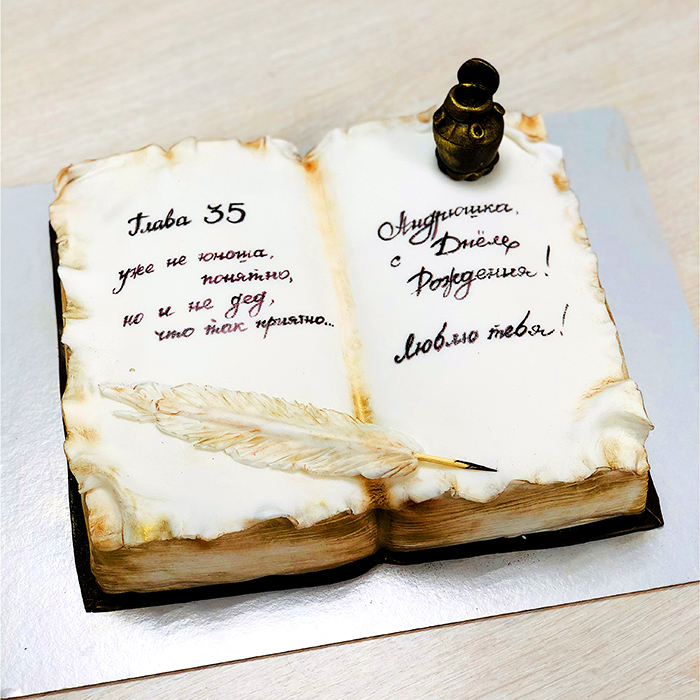 Глава 35
уже не юноша,
понятно,
но и не дед,
что так приятно...
Андрюшка,
с Днём
Рождения!
Люблю тебя!